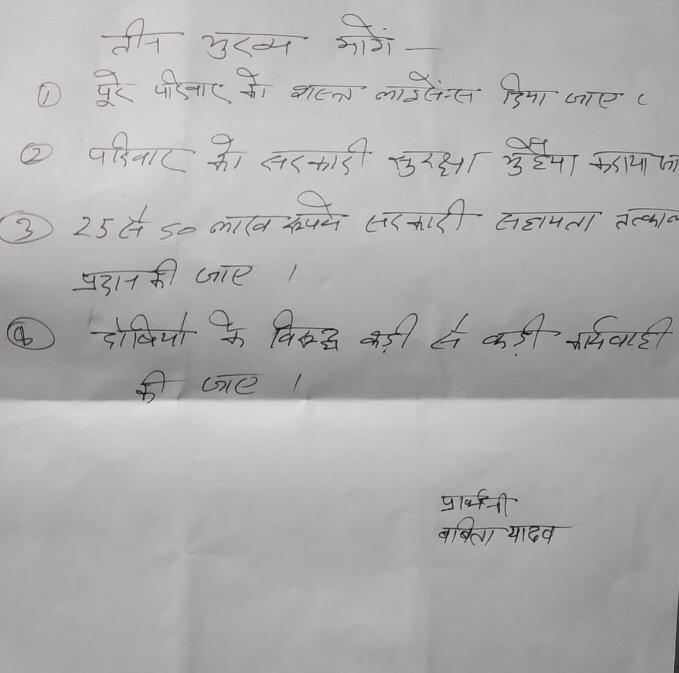 तीन मुख्य मांगें —
① पूरे परिवार को शस्त्र लाइसेंस दिया जाए ।
② परिवार को सरकारी सुरक्षा मुहैया कराया जा
③ 25 से 50 लाख रूपये सरकारी सहायता तत्काल
प्रदान की जाए ।
④ दोषियो के विरूद्ध कड़ी से कड़ी कार्यवाही
की जाए ।
प्रार्थनी
बबिता यादव